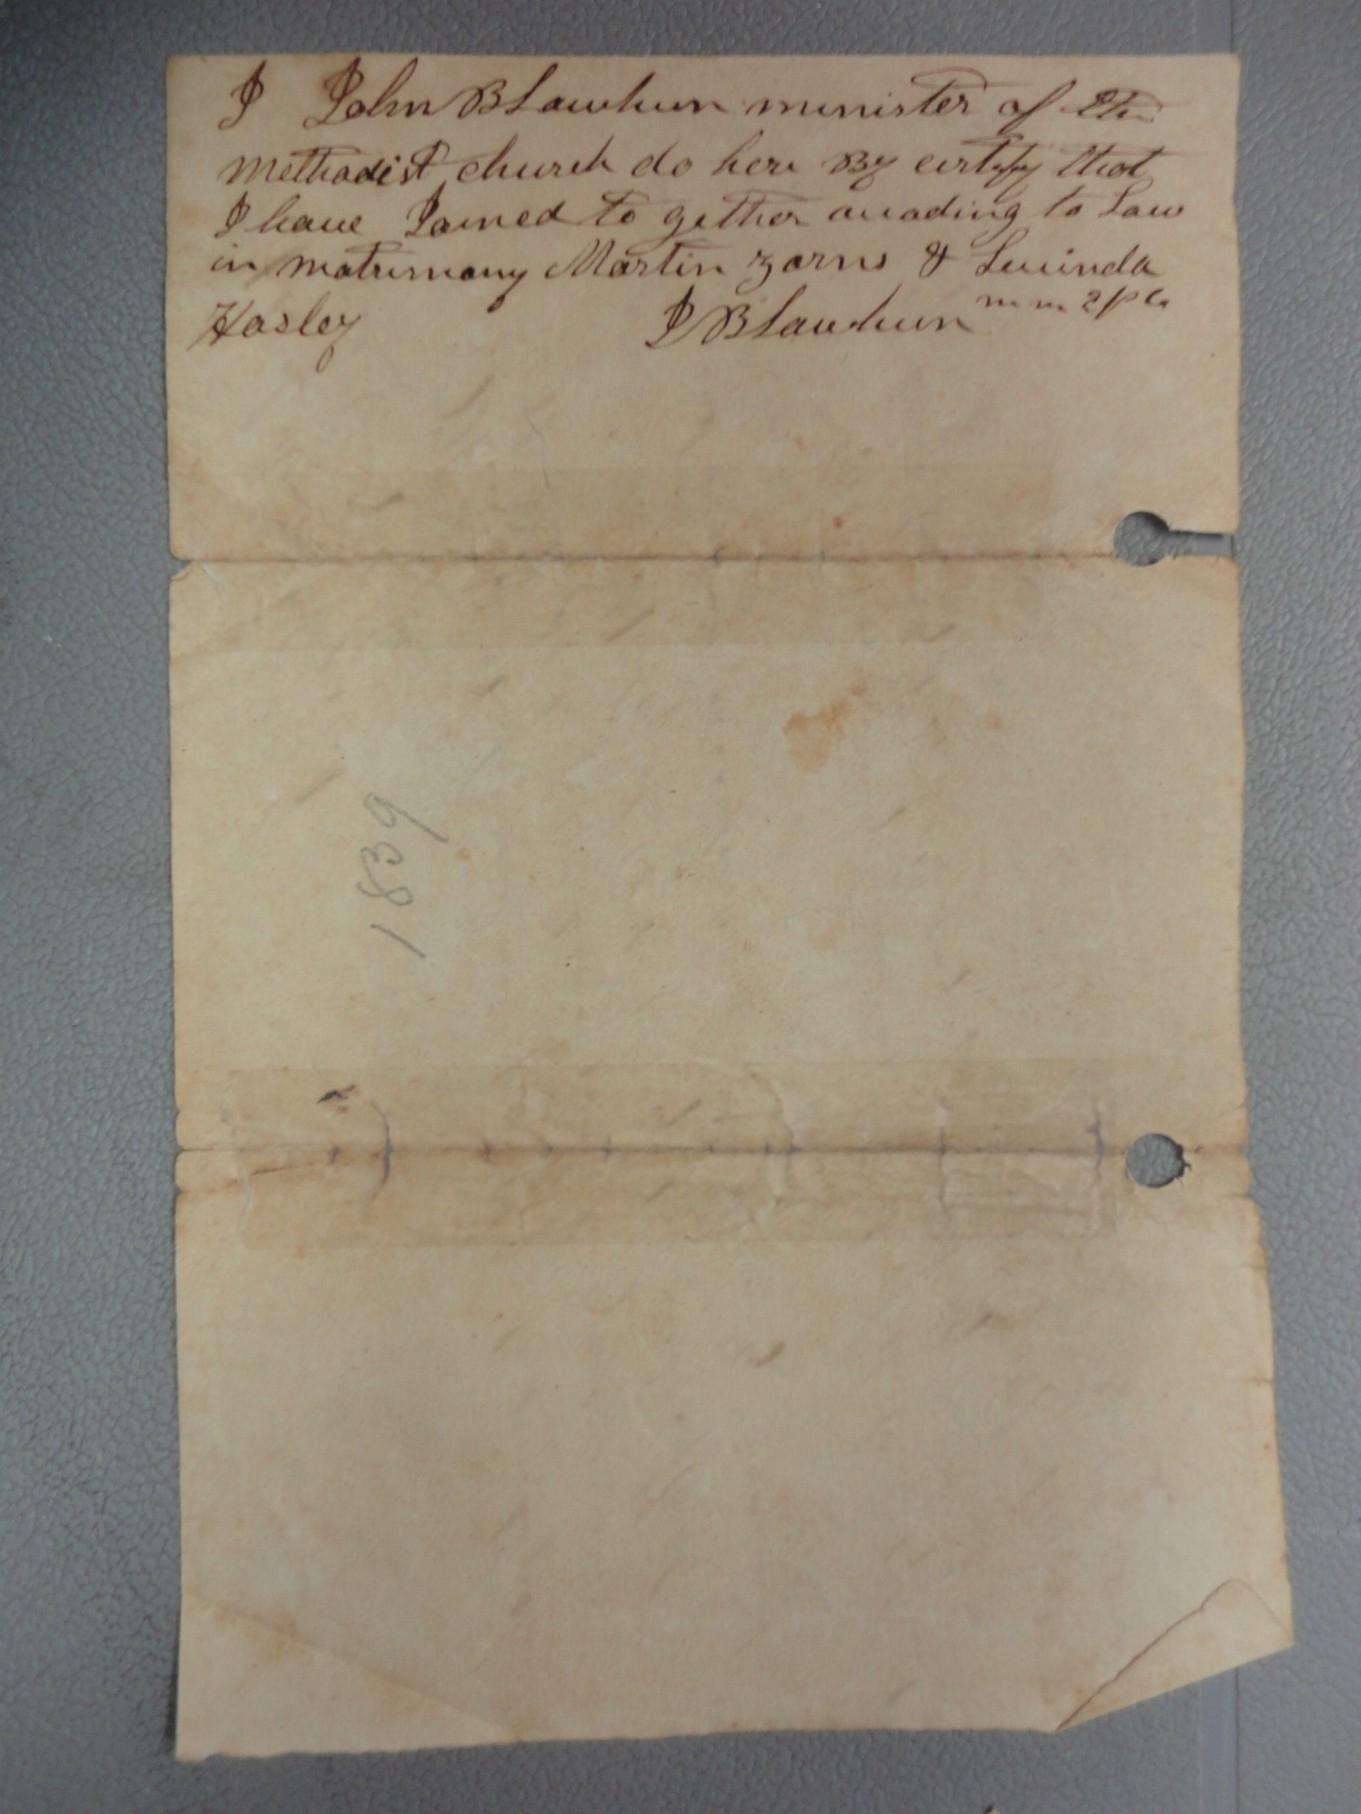 I John B Lawhun minister of the
Methodist church do here By certify that
I have Joined to gether accoding to Law
in matrimony Martin Zorns & Lucinda
Hosley J B Lawhun
1839